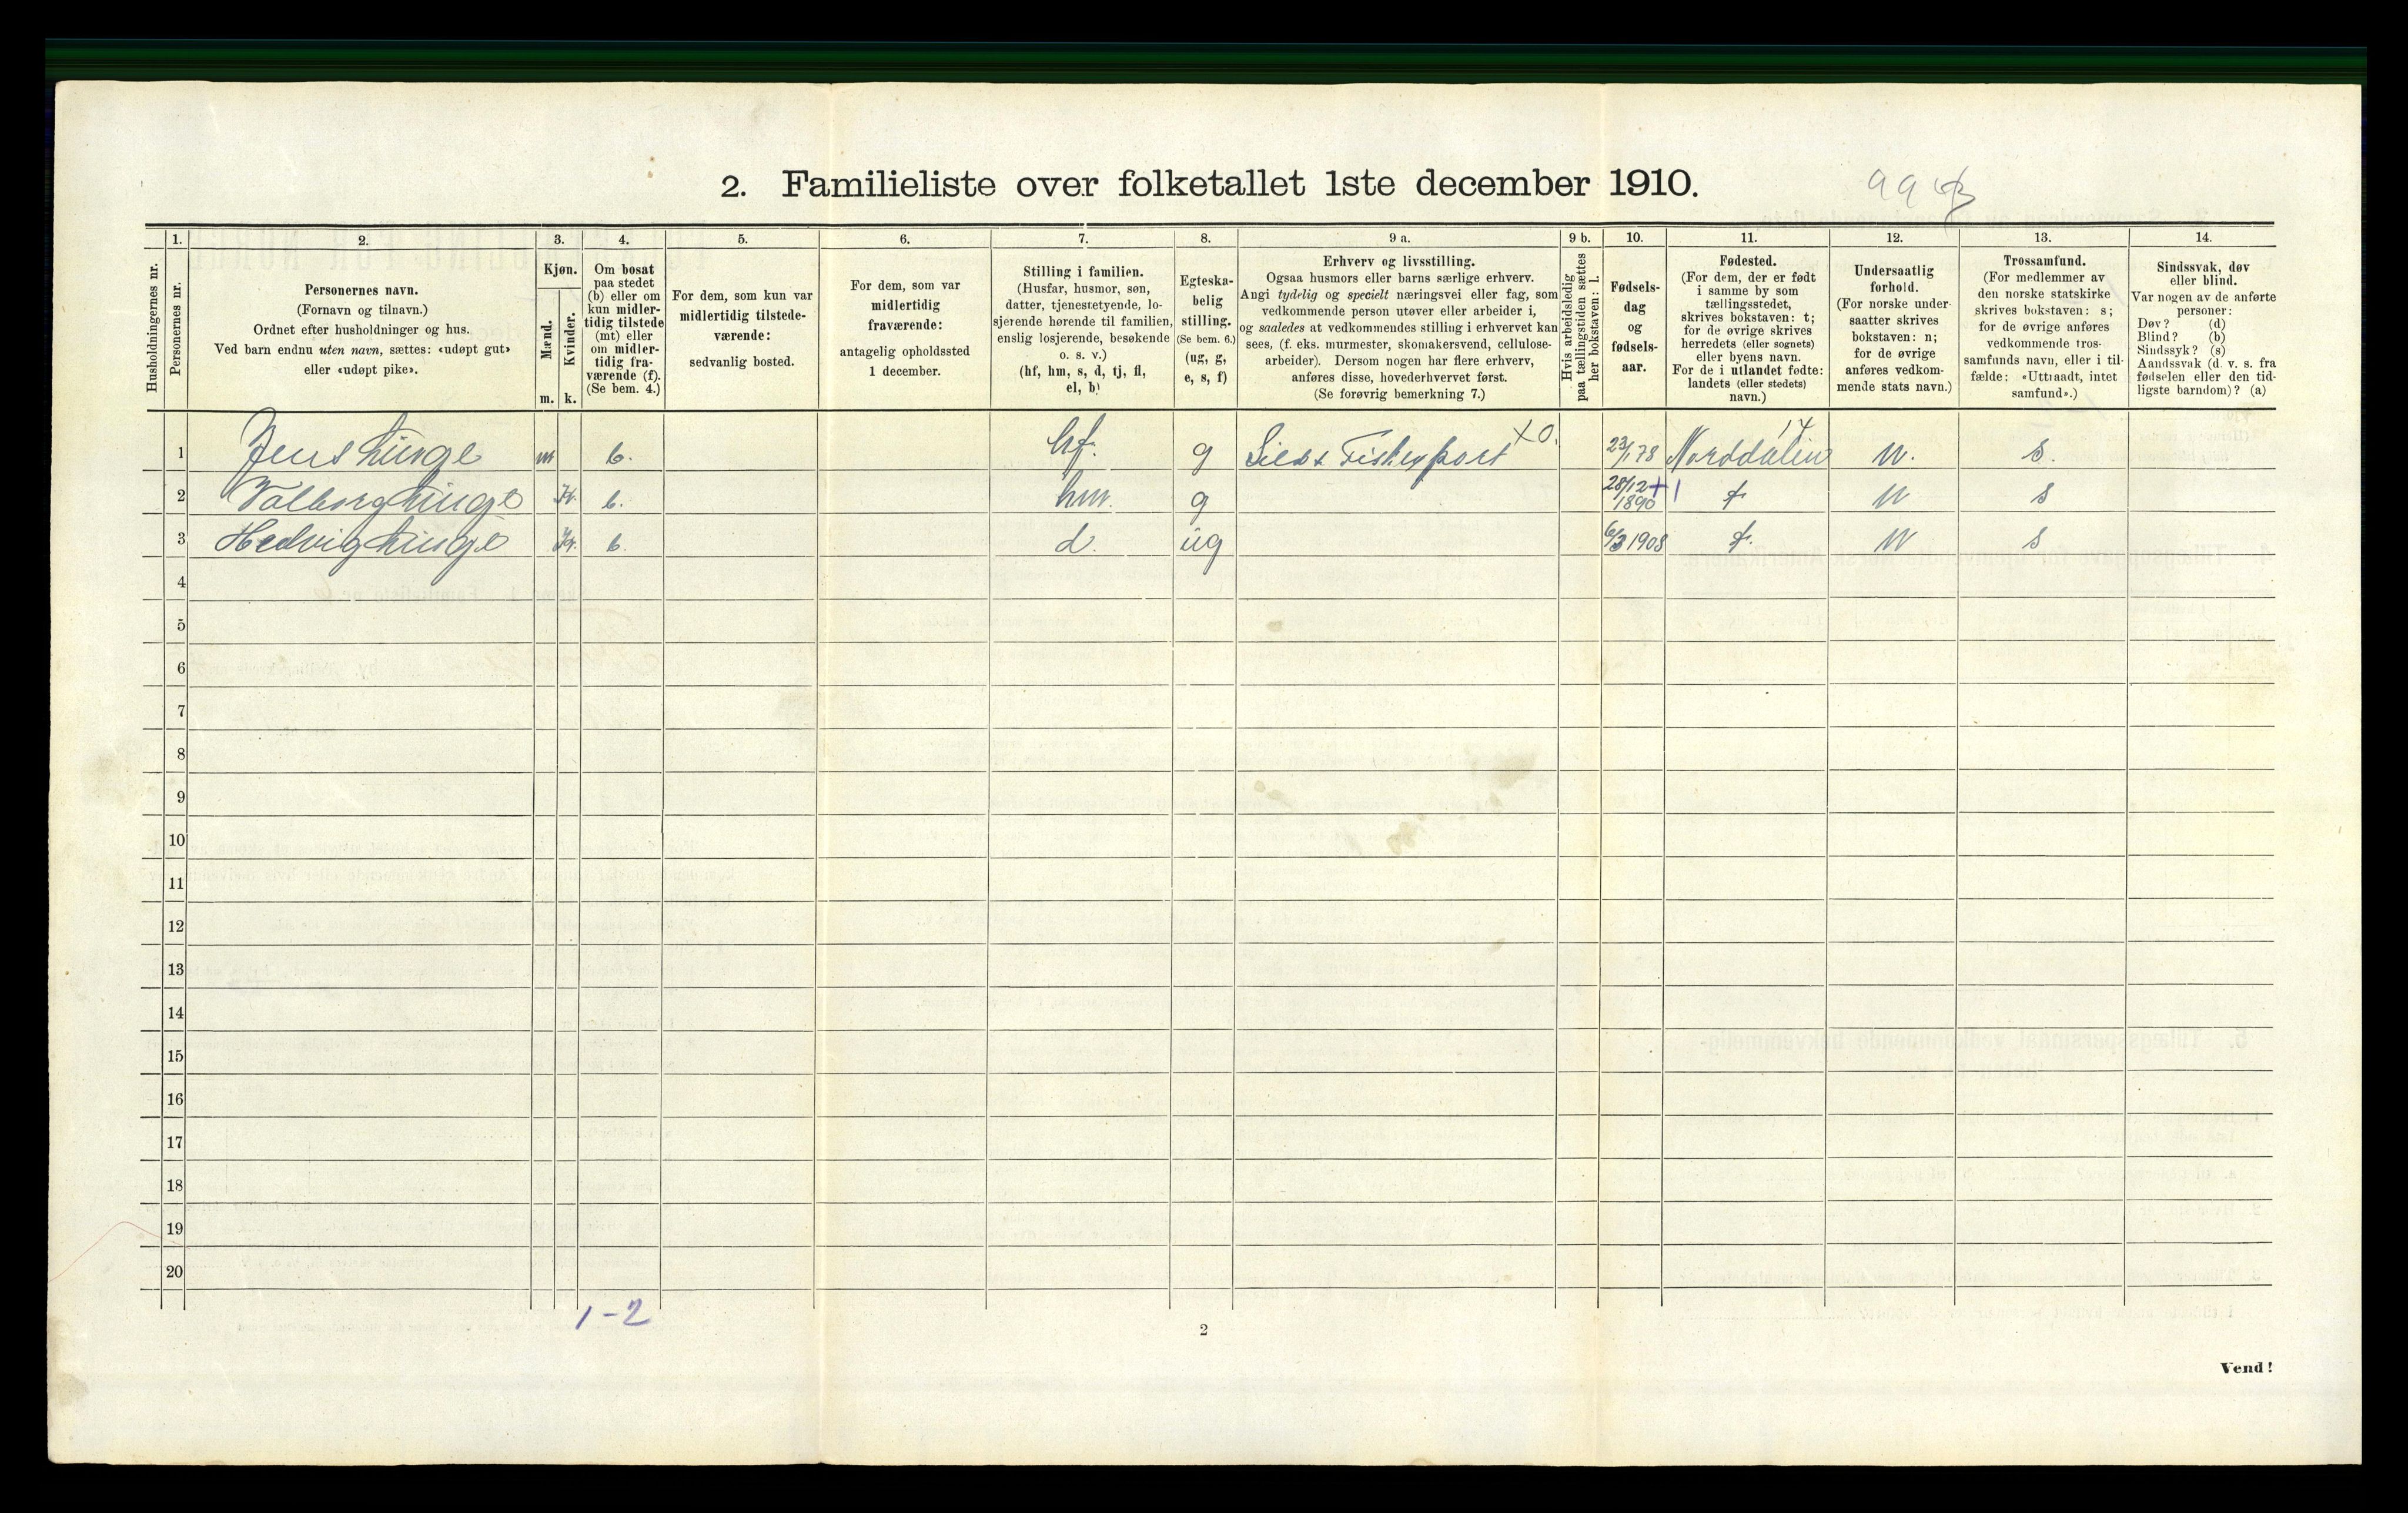 2. Familieliste over folketallet 1ste december 1910.
1. 2. 3. 4. 5. 6. 7. 8. 9 a. 9 b. 10. 11. 12. 13. 14.
Husholdningernes nr.
Personernes nr.
Personernes navn.
(Fornavn og tilnavn.)
Ordnet efter husholdninger og hus.
Ved barn endnu uten navn, sættes: «udøpt gut»
eller «udøpt pike».
Kjøn.
Mænd.
Kvinder.
m. k.
Om bosat
paa stedet
(b) eller om
kun midler-
tidig tilstede
(mt) eller
om midler-
tidig fra-
værende (f).
(Se bem. 4.)
For dem, som kun var
midlertidig tilstede-
værende:
sedvanlig bosted.
For dem, som var
midlertidig
fraværende:
antagelig opholdssted
1 december.
Stilling i familien.
(Husfar, husmor, søn,
datter, tjenestetyende, lo-
sjerende hørende til familien,
enslig losjerende, besøkende
o. s. v.)
(hf, hm, s, d, tj, fl,
el, b)
Egteska-
belig
stilling.
(Se bem. 6.)
(ug, g,
e, s, f)
Erhverv og livsstilling.
Ogsaa husmors eller barns særlige erhverv.
Angi tydelig og specielt næringsvei eller fag, som
vedkommende person utøver eller arbeider i,
og saaledes at vedkommendes stilling i erhvervet kan
sees, (f. eks. murmester, skomakersvend, cellulose-
arbeider). Dersom nogen har flere erhverv,
anføres disse, hovederhvervet først.
(Se forøvrig bemerkning 7.)
Hvis arbeidsledig
paa tællingstiden sættes
her bokstaven: l.
Fødsels-
dag
og
fødsels-
aar.
Fødested.
(For dem, der er født
i samme by som
tællingsstedet,
skrives bokstaven: t;
for de øvrige skrives
herredets (eller sognets)
eller byens navn.
For de i utlandet fødte:
landets (eller stedets)
navn.)
Undersaatlig
forhold.
(For norske under-
saatter skrives
bokstaven: n;
for de øvrige
anføres vedkom-
mende stats navn.)
Trossamfund.
(For medlemmer av
den norske statskirke
skrives bokstaven: s;
for de øvrige anføres
vedkommende tros-
samfunds navn, eller i til-
fælde: «Uttraadt, intet
samfund».)
Sindssvak, døv
eller blind.
Var nogen av de anførte
personer:
Døv? (d)
Blind? (b)
Sindssyk? (s)
Aandssvak (d. v. s. fra
fødselen eller den tid-
ligste barndom)? (a)
1 Jens Linge m b. hf. g Sild & Fiskexport X O. 23/1 78 Norddalen 17 n. s.
2 Valborg Linge k. b. hm. g 28/12 1890 t n s
3 Hedvig Linge k. b. d. ug 6/3 1908 t. n s
4
5
6
7
8
9
10
11
12
13
14
15
16
17
18
19
20
1-2
2
Vend!